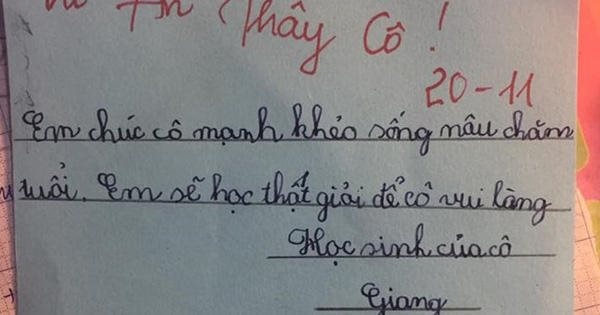 Thầy Cô !
20-11
Em chúc cô mạnh khẻo sống nâu chăm
tuổi. Em sẽ học thật giải để cô vui làng
Học sinh của cô
Giang